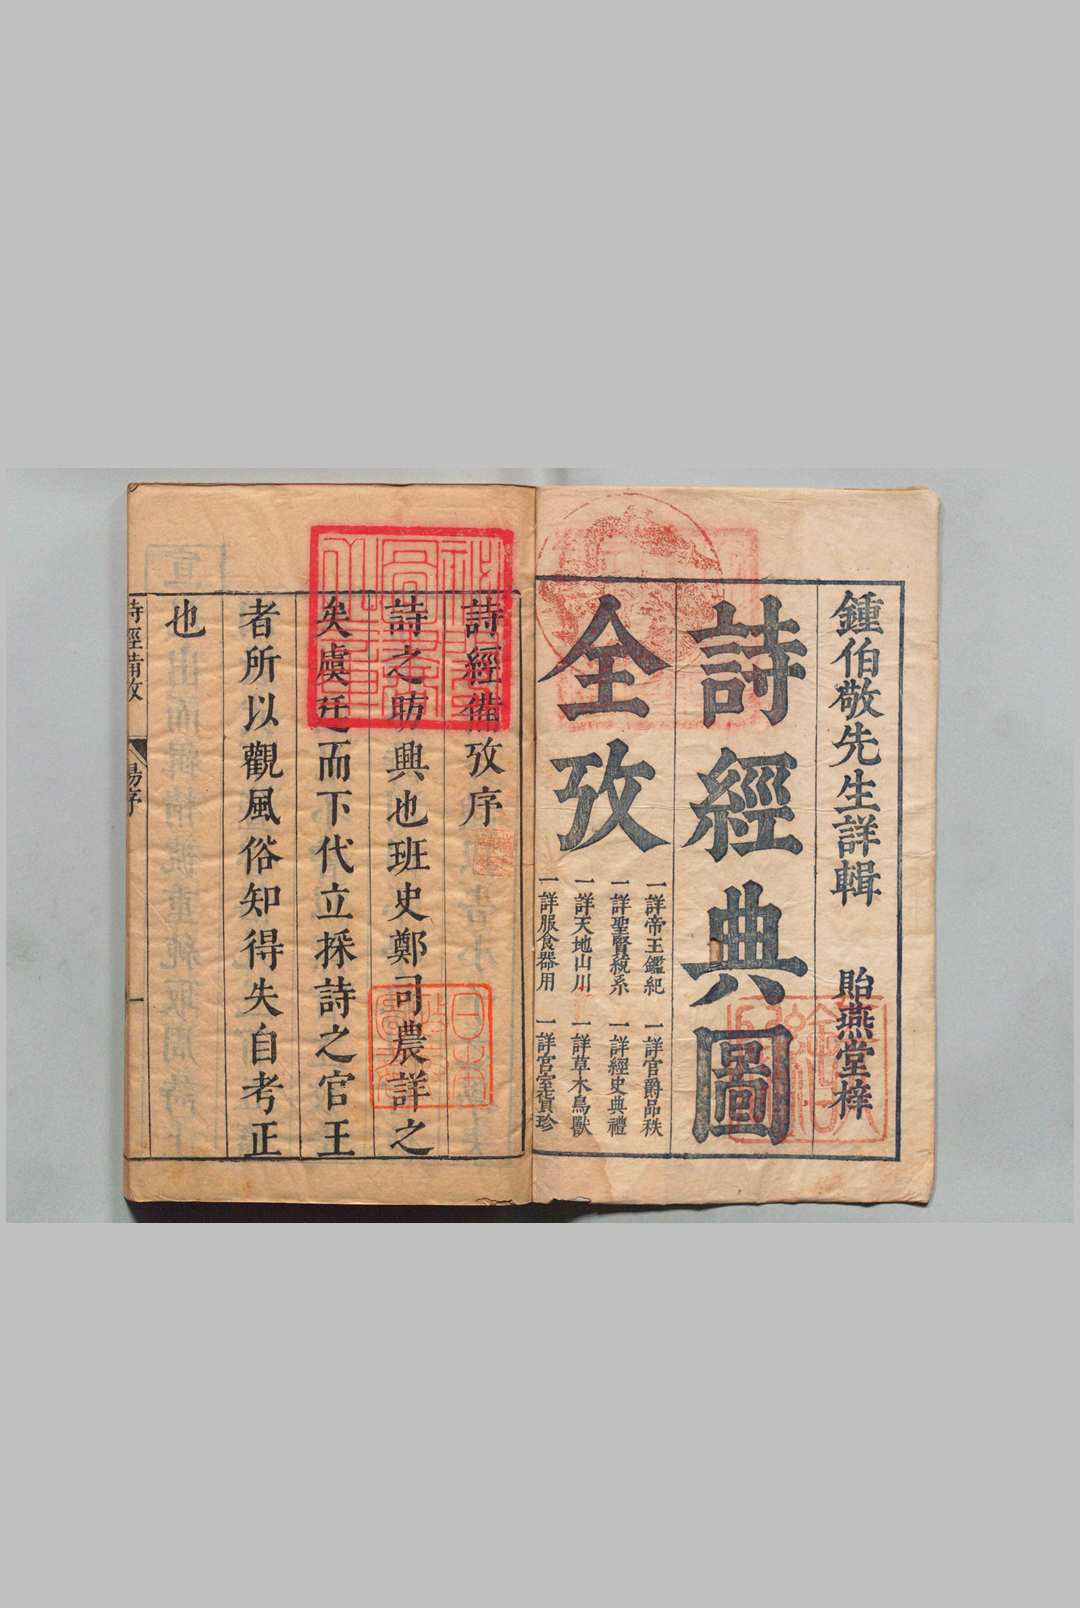 鍾伯敬先生詳輯 貽燕堂梓
詩經典圖
全攷
一詳帝王鑑紀 一詳官爵品秩
一詳聖賢統系 一詳經史典禮
一詳天地山川 一詳草木鳥獸
一詳服食器用 一詳宮室寶珍
詩經備攷序
詩之昉興也班史鄭司農詳之
矣虞廷而下代立採詩之官王
者所以觀風俗知得失自考正
也
詩經備攷 序 一